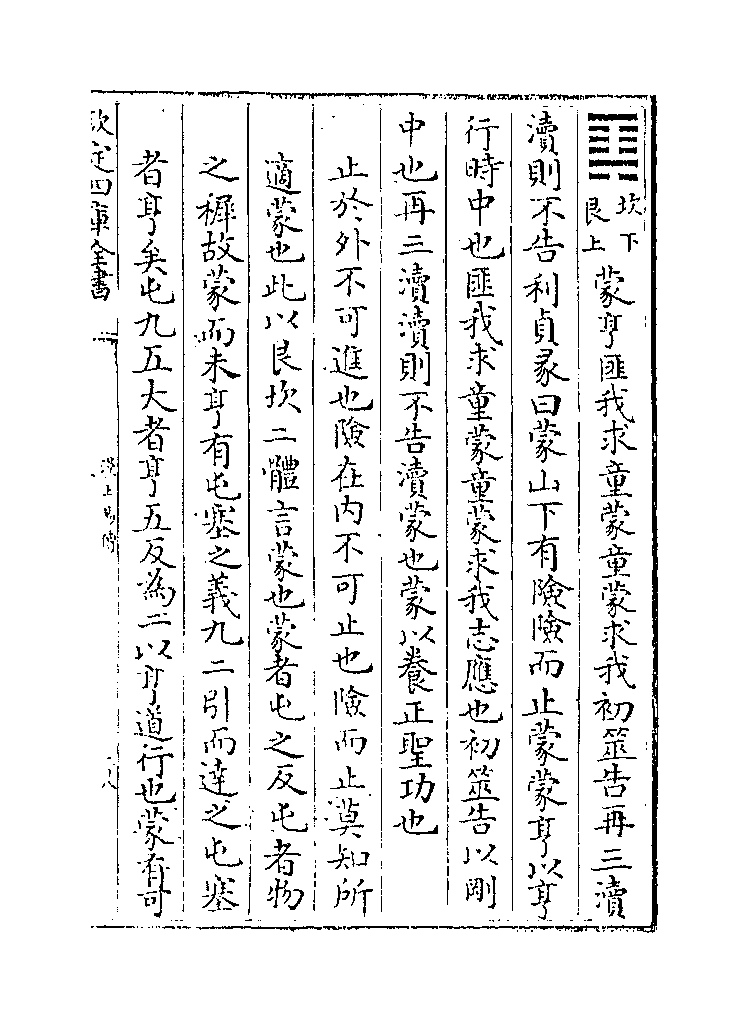 坎下
艮上
蒙亨匪我求童蒙童蒙求我初筮告再三瀆
瀆則不告利貞彖曰蒙山下有險險而止蒙蒙亨以亨
行時中也匪我求童蒙童蒙求我志應也初筮告以剛
中也再三瀆瀆則不告瀆蒙也蒙以養正聖功也
止於外不可進也險在内不可止也險而止莫知所
適蒙也此以艮坎二體言蒙也蒙者屯之反屯者物
之穉故蒙而未亨有屯塞之義九二引而達之屯塞
者亨矣屯九五大者亨五反為二以亨道行也蒙有可
欽定四庫全書
漢上易傳